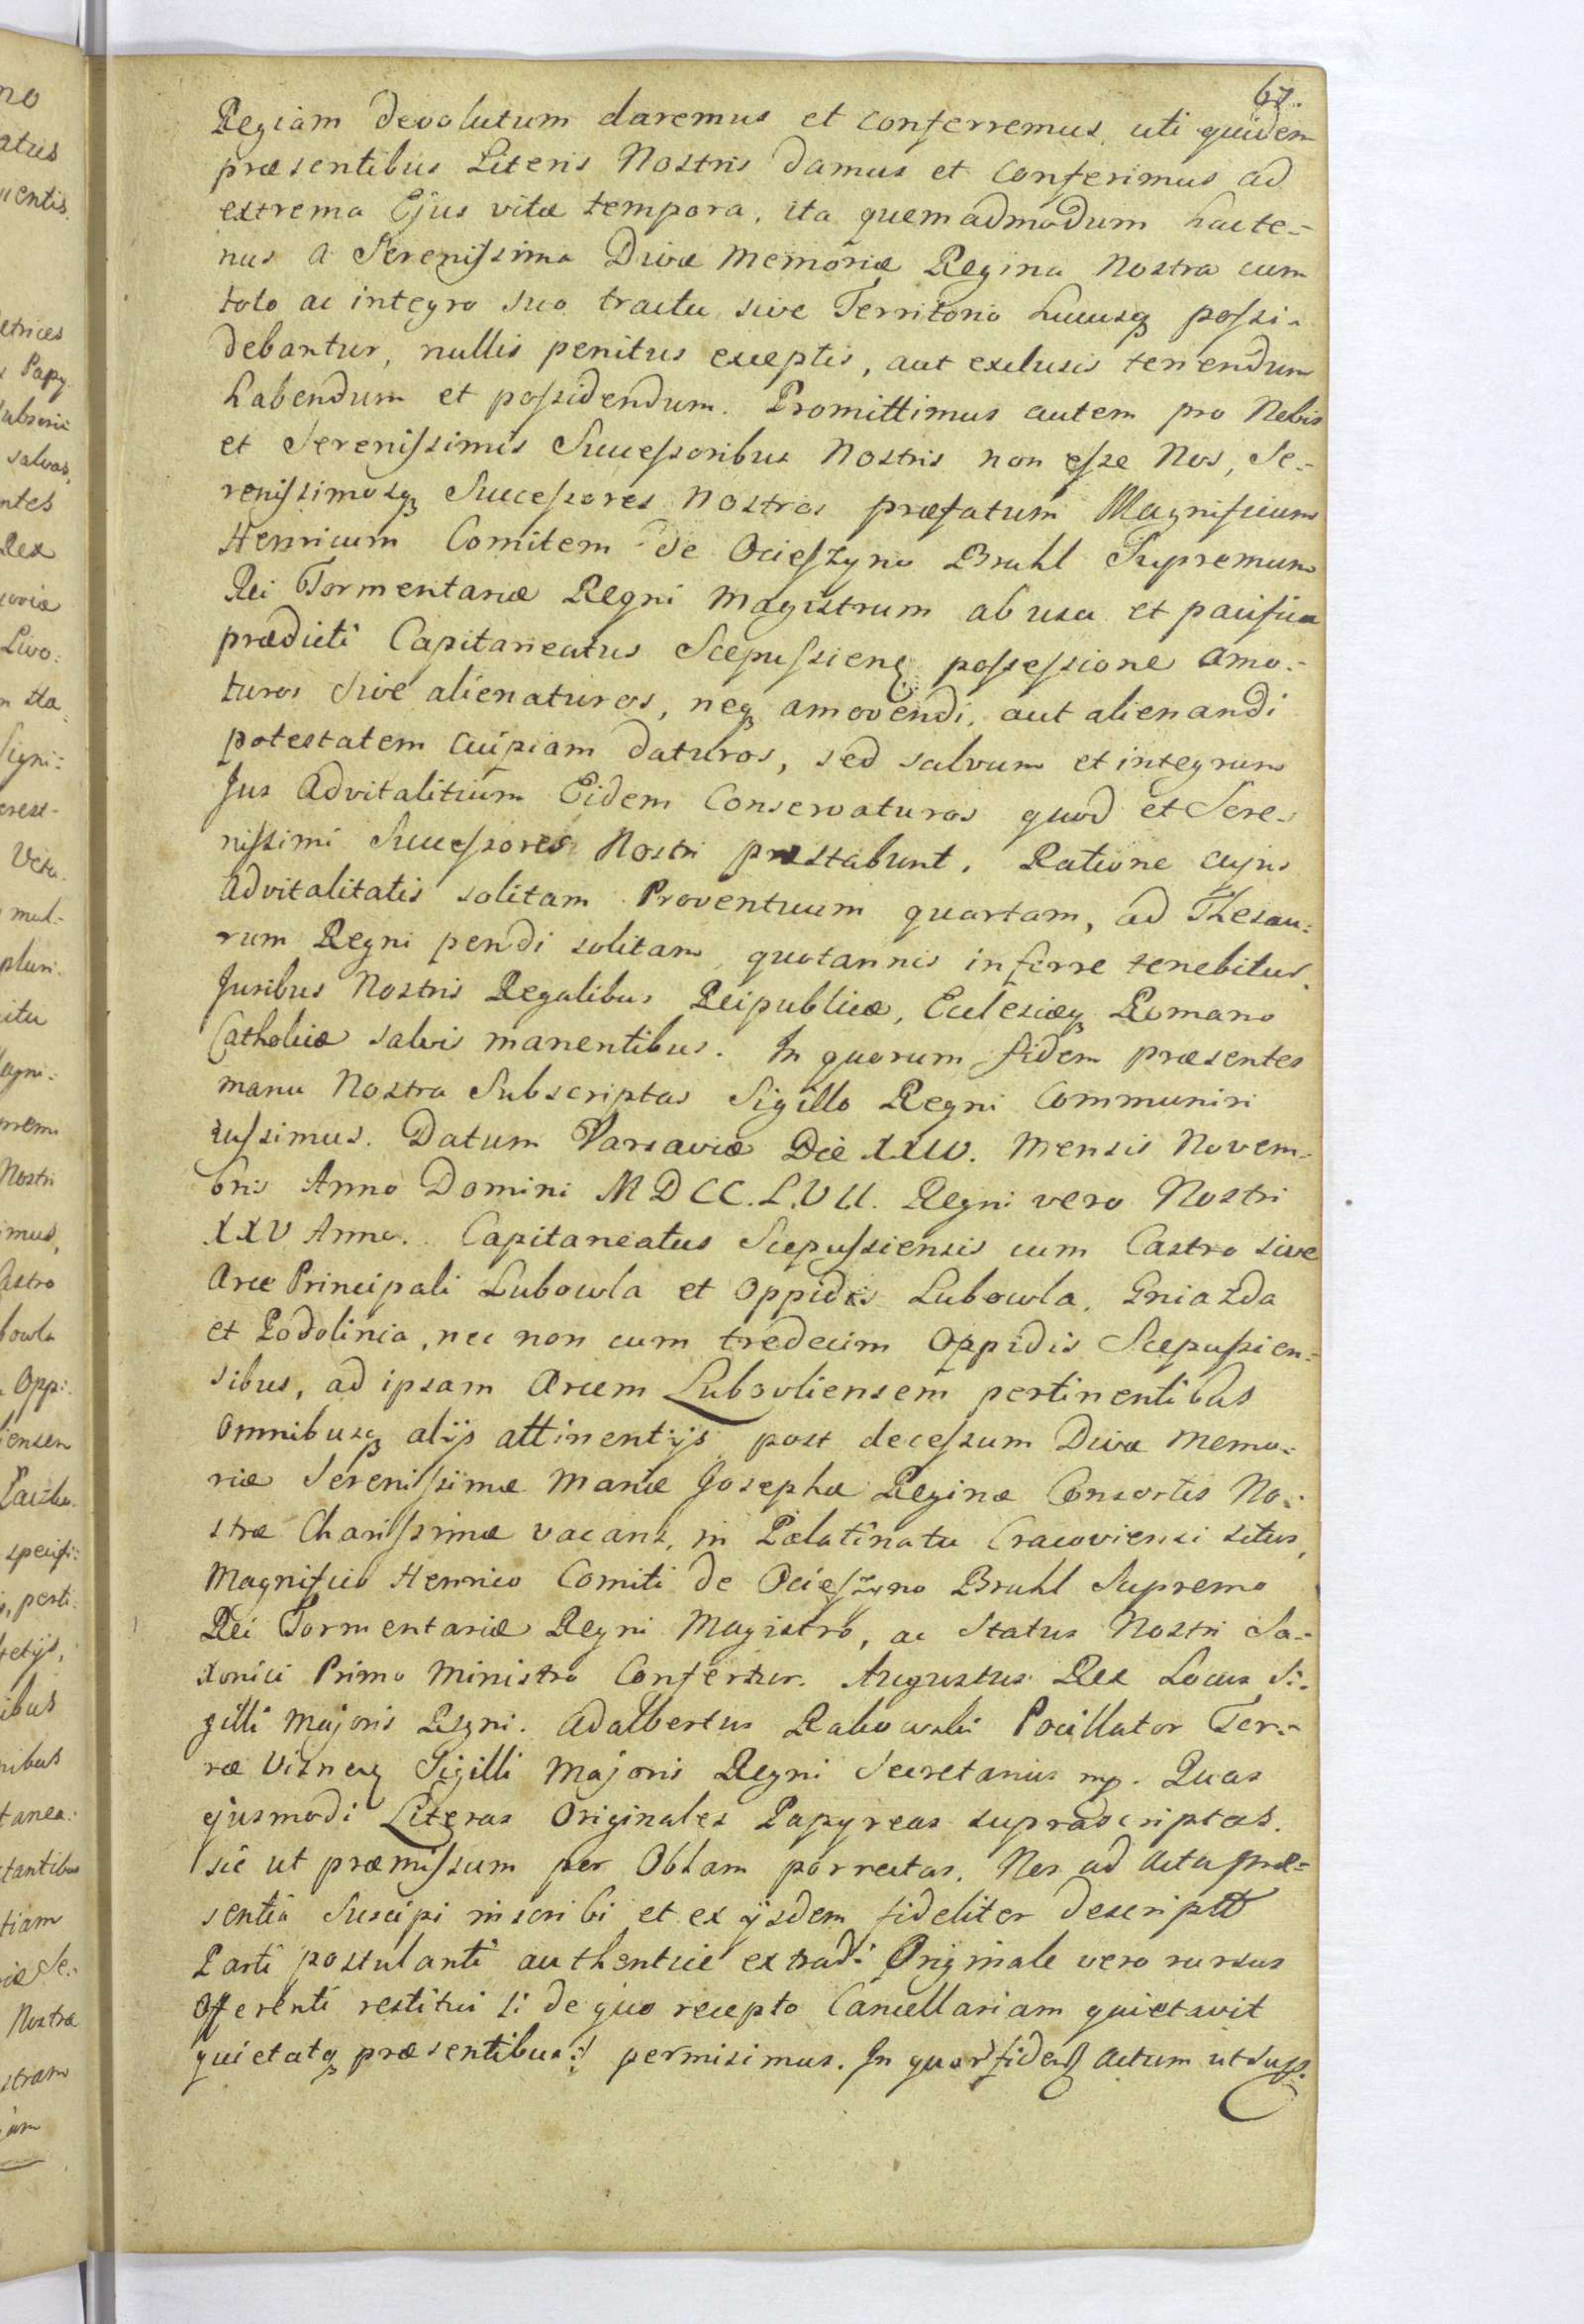 67.
Regiam devolutum daremus et conferremus, uti quidem
præsentibus Literis Nostris damus et Conferimus ad
extrema Ejus vitæ tempora, ita quemadmodum hacte=
nus a Serenissima Divæ Memoriæ Regina Nostra cum
toto ac integro suo tractu sive Territorio hucusq possi=
debantur, nullis penitus exceptis, aut exclusis tenendum
habendum et possidendum. Promittimus autem pro Nobis
et Serenissimis Successoribus Nostris non esse Nos, Se=
renissimosq Successores Nostros præfatum Magnificum
Henricum Comitem de Ocieszyno Bruhl Supremum
Rei Tormentariæ Regni Magistrum ab usu et pacifica
prædicti Capitaneatus Scepussienẹ possessione amo=
turos sive alienaturos, neq amovendi, aut alienandi
potestatem cuipiam daturos, sed salvum et integrum
Jus Advitalitium Eidem Conservaturos quod et Sere=
nissimi Successores Nostri præstabunt. Ratione cujus
advitalitatis solitam Proventuum quartam, ad Thesau=
rum Regni pendi solitam quotannis inferre tenebitur.
Juribus Nostris Regalibus Reipublicæ, Ecclesiæq Romano
Catholicæ salvis manentibus. In quorum fidem præsentes
manu Nostra Subscriptas Sigillo Regni Communiri
iussimus. Datum Varsaviæ Die XXIV. Mensis Novem=
bris Anno Domini MDCC.LVII. Regni vero Nostri
XXV Anno. Capitaneatus Scepussiensis cum Castro sive
Arce Principali Lubowla et Oppidis Lubowla, Gniazda
et Podolinia, nec non cum tredecim Oppidis Scepussien=
sibus, ad ipsam Arcem Lubovliensem pertinentibus
Omnibusq alijs attinentijs post decessum Divæ Memo=
riæ Serenissimæ Mariæ Josephæ Reginæ Consortis No=
stræ Charissimæ vacans, in Palatinatu Cracoviensi situs,
Magnifico Henrico Comiti de Ocieszyno Bruhl Supremo
Rei Tormentariæ Regni Magistro, ac Status Nostri Sa=
xonici Primo Ministro Confertur. Augustus Rex Locus Si=
gilli Majoris Regni. Adalbertus Rakowski Pocillator Ter=
ræ Viznenẹ Sigilli Majoris Regni Secretarius mp. Quas
ejusmodi Literas Originales Papyreas supradscriptas.
sic ut præmissum per Oblam porrectas, Nos ad Acta præ=
sentia Suscipi inscribi et ex ijsdem fideliter descriptas
Parti postulanti authentice extradi Originale vero rursus
Offerenti restitui /: de quo recepto Cancellariam quietavit
quietatq præsentibus :/ permisimus. In quor fidem Actum ut sup.